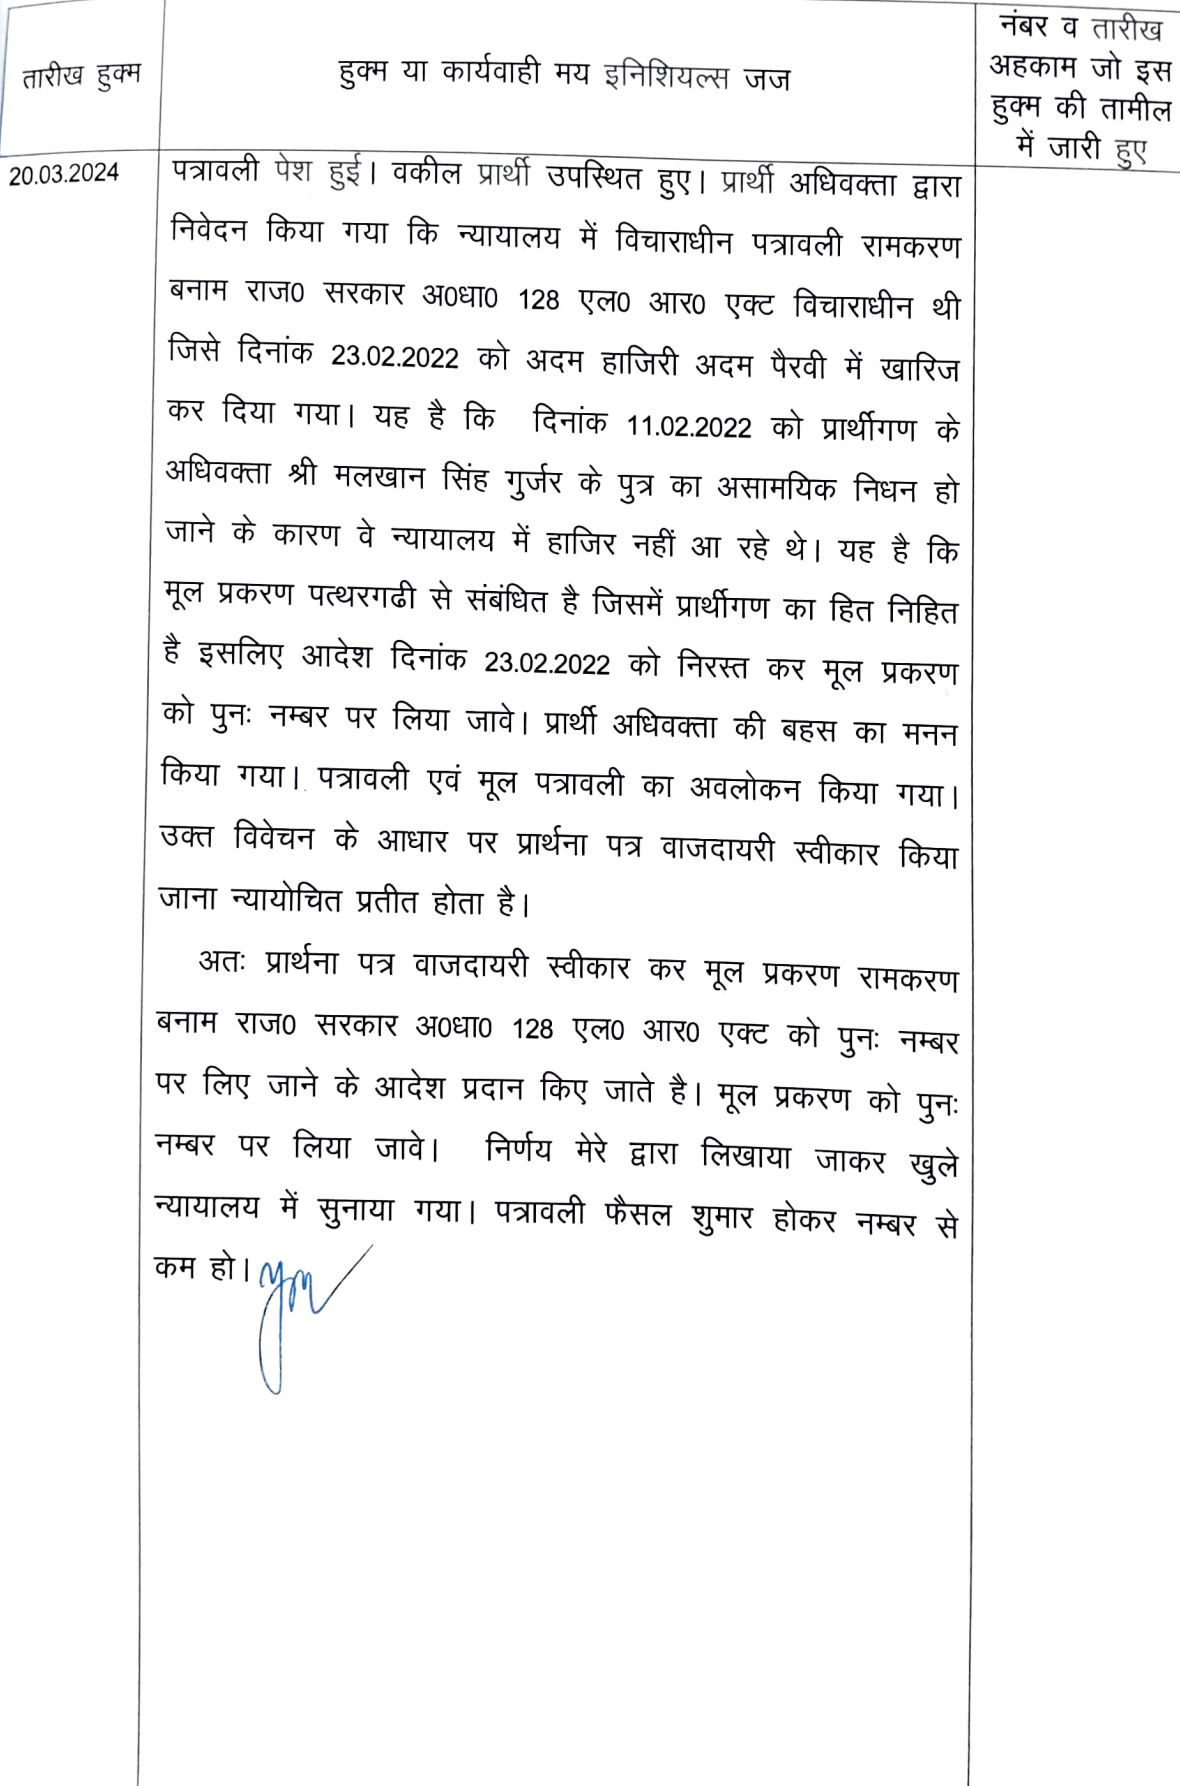 तारीख हुक्म
हुक्म या कार्यवाही मय इनिशियल्स जज
नंबर व तारीख
अहकाम जो इस
हुक्म की तामील
में जारी हुए
20.03.2024
पत्रावली पेश हुई। वकील प्रार्थी उपस्थित हुए। प्रार्थी अधिवक्ता द्वारा
निवेदन किया गया कि न्यायालय में विचाराधीन पत्रावली रामकरण
बनाम राज0 सरकार अ0धा0 128 एल0 आर0 एक्ट विचाराधीन थी
जिसे दिनांक 23.02.2022 को अदम हाजिरी अदम पैरवी में खारिज
कर दिया गया। यह है कि दिनांक 11.02.2022 को प्रार्थीगण के
अधिवक्ता श्री मलखान सिंह गुर्जर के पुत्र का असामयिक निधन हो
जाने के कारण वे न्यायालय में हाजिर नहीं आ रहे थे। यह है कि
मूल प्रकरण पत्थरगढी से संबंधित है जिसमें प्रार्थीगण का हित निहित
है इसलिए आदेश दिनांक 23.02.2022 को निरस्त कर मूल प्रकरण
को पुनः नम्बर पर लिया जावे। प्रार्थी अधिवक्ता की बहस का मनन
किया गया। पत्रावली एवं मूल पत्रावली का अवलोकन किया गया।
उक्त विवेचन के आधार पर प्रार्थना पत्र वाजदायरी स्वीकार किया
जाना न्यायोचित प्रतीत होता है।
अतः प्रार्थना पत्र वाजदायरी स्वीकार कर मूल प्रकरण रामकरण
बनाम राज0 सरकार अ0धा0 128 एल0 आर0 एक्ट को पुनः नम्बर
पर लिए जाने के आदेश प्रदान किए जाते है। मूल प्रकरण को पुनः
नम्बर पर लिया जावे। निर्णय मेरे द्वारा लिखाया जाकर खुले
न्यायालय में सुनाया गया। पत्रावली फैसल शुमार होकर नम्बर से
कम हो।